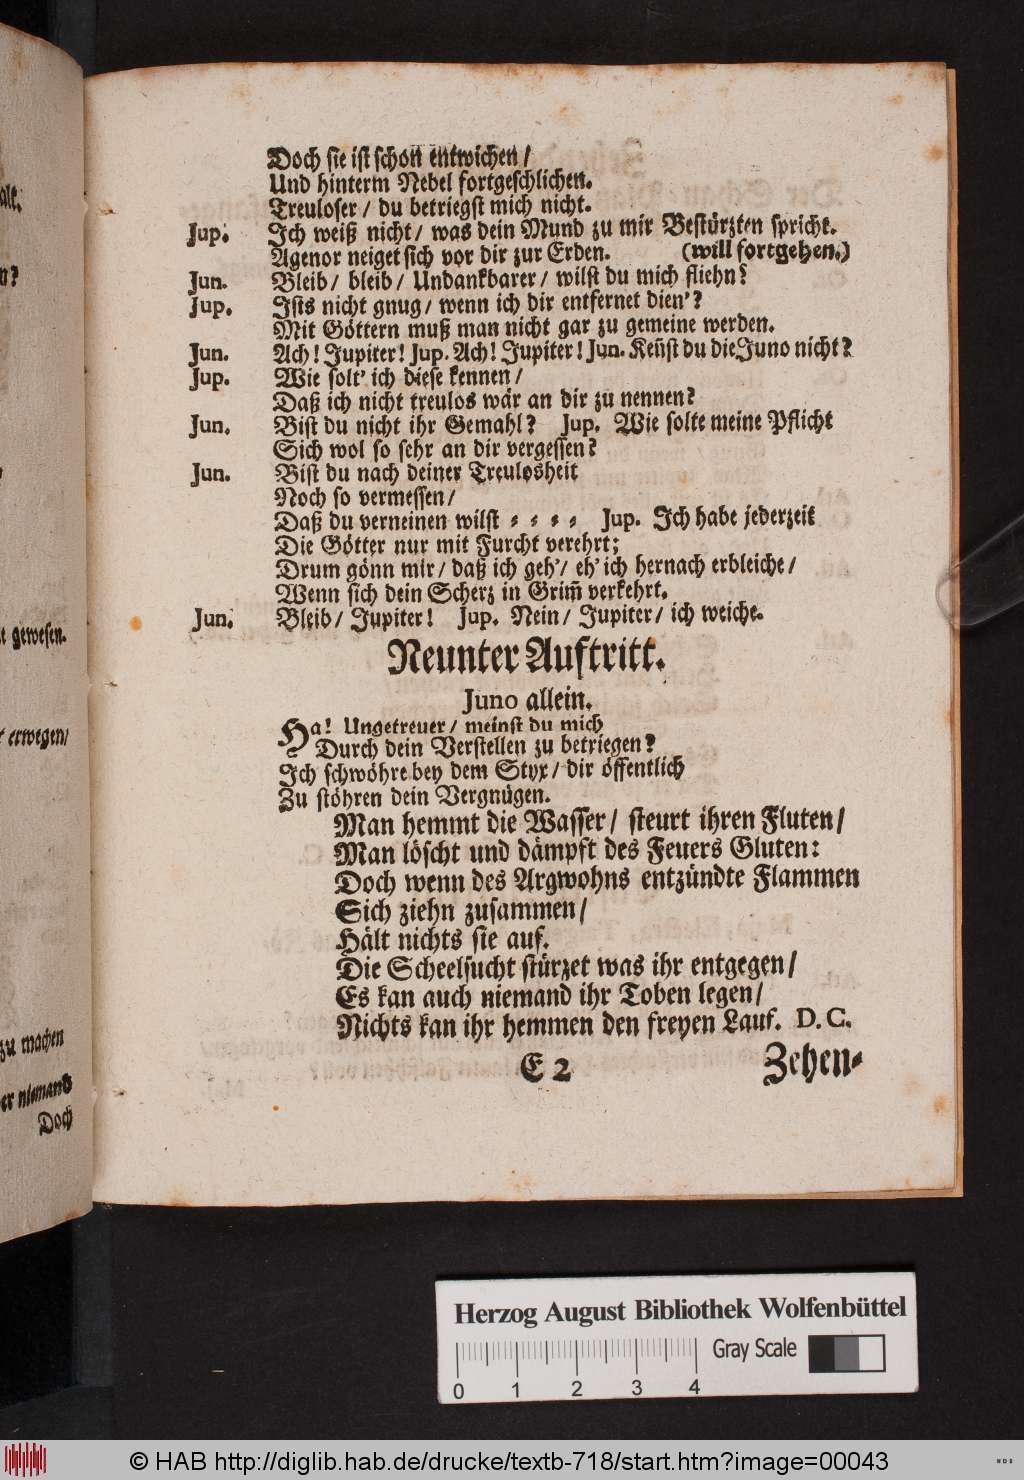 alt.
n?
t gewesen.
erwegen/
zu machen
er niemand
Doch
Doch sie ist schon entwichen/
Und hinterm Nebel fortgeschlichen.
Treuloser/ du betriegst mich nicht.
Jup. Ich weiß nicht/ was dein Mund zu mir Bestürzten spricht.
Agenor neiget sich vor dir zur Erden. (will fortgehen.)
Jun. Bleib/ bleib/ Undankbarer/ wilst du mich fliehn?
Jup. Ists nicht gnug/ wenn ich dir entfernet dien'?
Mit Göttern muß man nicht gar zu gemeine werden.
Jun. Ach! Jupiter! Jup. Ach! Jupiter! Jun. Keñst du die Juno nicht?
Jup. Wie solt' ich diese kennen/
Daß ich nicht treulos wär an dir zu nennen?
Jun. Bist du nicht ihr Gemahl? Jup. Wie solte meine Pflicht
Sich wol so sehr an dir vergessen?
Jun. Bist du nach deiner Treulosheit
Noch so vermessen/
Daß du verneinen wilst ⸗ ⸗ ⸗ ⸗ Jup. Ich habe jederzeit
Die Götter nur mit Furcht verehrt;
Drum gönn mir/ daß ich geh'/ eh' ich hernach erbleiche/
Wenn sich dein Scherz in Grim̃ verkehrt.
Jun. Bleib/ Jupiter! Jup. Nein/ Jupiter/ ich weiche.
Neunter Auftritt.
Juno allein.
Ha! Ungetreuer/ meinst du mich
Durch dein Verstellen zu betriegen?
Ich schwöhre bey dem Styx/ dir öffentlich
Zu stöhren dein Vergnügen.
Man hemmt die Wasser/ steurt ihren Fluten/
Man löscht und dämpft des Feuers Gluten:
Doch wenn des Argwohns entzündte Flammen
Sich ziehn zusammen/
Hält nichts sie auf.
Die Scheelsucht stürzet was ihr entgegen/
Es kan auch niemand ihr Toben legen/
Nichts kan ihr hemmen den freyen Lauf. D. C.
E 2 Zehen⸗
Herzog August Bibliothek Wolfenbüttel
Gray Scale
0 1 2 3 4
© HAB http://diglib.hab.de/drucke/textb-718/start.htm?image=00043